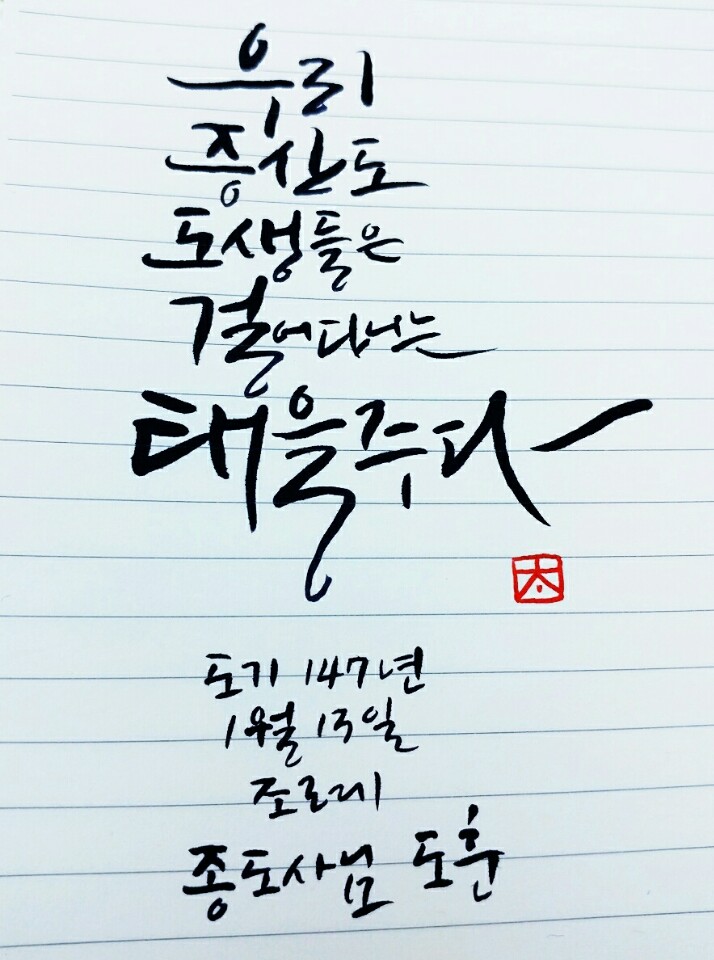 우리
증산도
도생들은
걸어다니는
태을주다
太
도기 147년
1월 13일
조례
종도사님 도훈